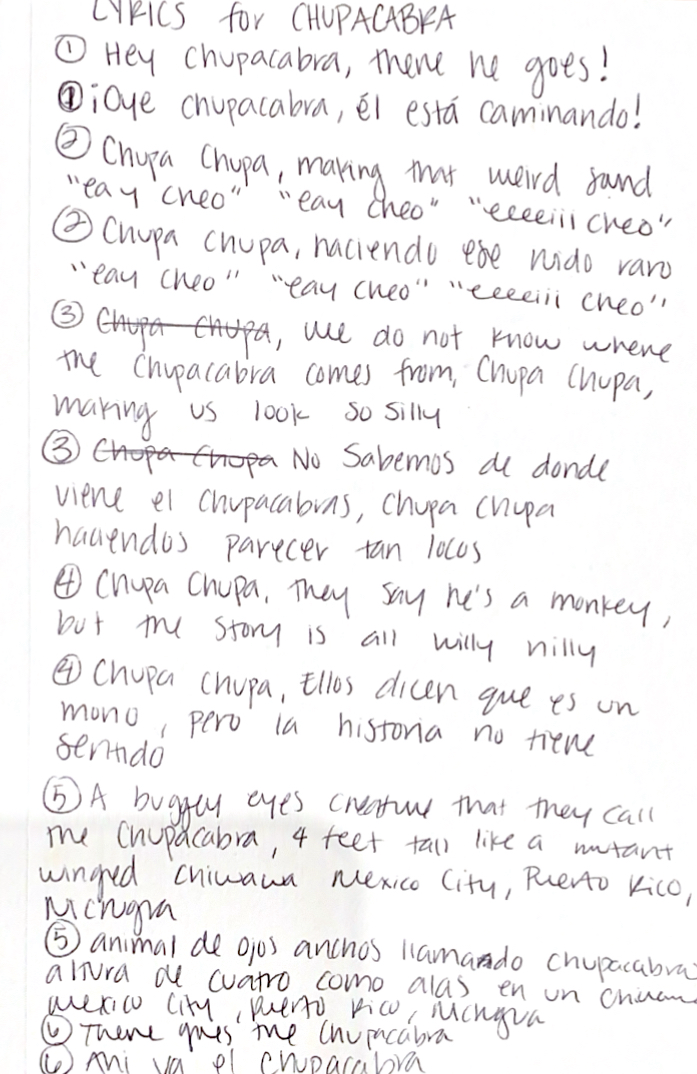 LYRICS for CHUPACABRA
① Hey Chupacabra, there he goes!
① ¡Oye chupacabra, él está caminando!
② Chupa Chupa, making that weird sound
"eay cheo" "eay cheo" "eeeeiii cheo"
② Chupa chupa, haciendo ese ruido raro
"eay cheo" "eay cheo" "eeeeiii cheo"
③ Chupa Chupa, we do not know where
the Chupacabra comes from, Chupa Chupa,
making us look so silly
③ Chupa Chupa No Sabemos de donde
viene el Chupacabras, Chupa Chupa
haciendos parecer tan locos
④ Chupa Chupa, they say he's a monkey,
but the story is all willy nilly
④ Chupa Chupa, Ellos dicen que es un
mono, pero la historia no tiene
sentido
⑤ A buggey eyes creature that they call
the Chupacabra, 4 feet tall like a mutant
winged chiwawa Mexico City, Puerto Rico,
⑤ animal de ojos anchos llamando chupacabra
altura de cuatro como alas en un
Mexico City, Puerto Rico,
⑥ There goes the Chupacabra
⑥ Ahi va el Chupacabra